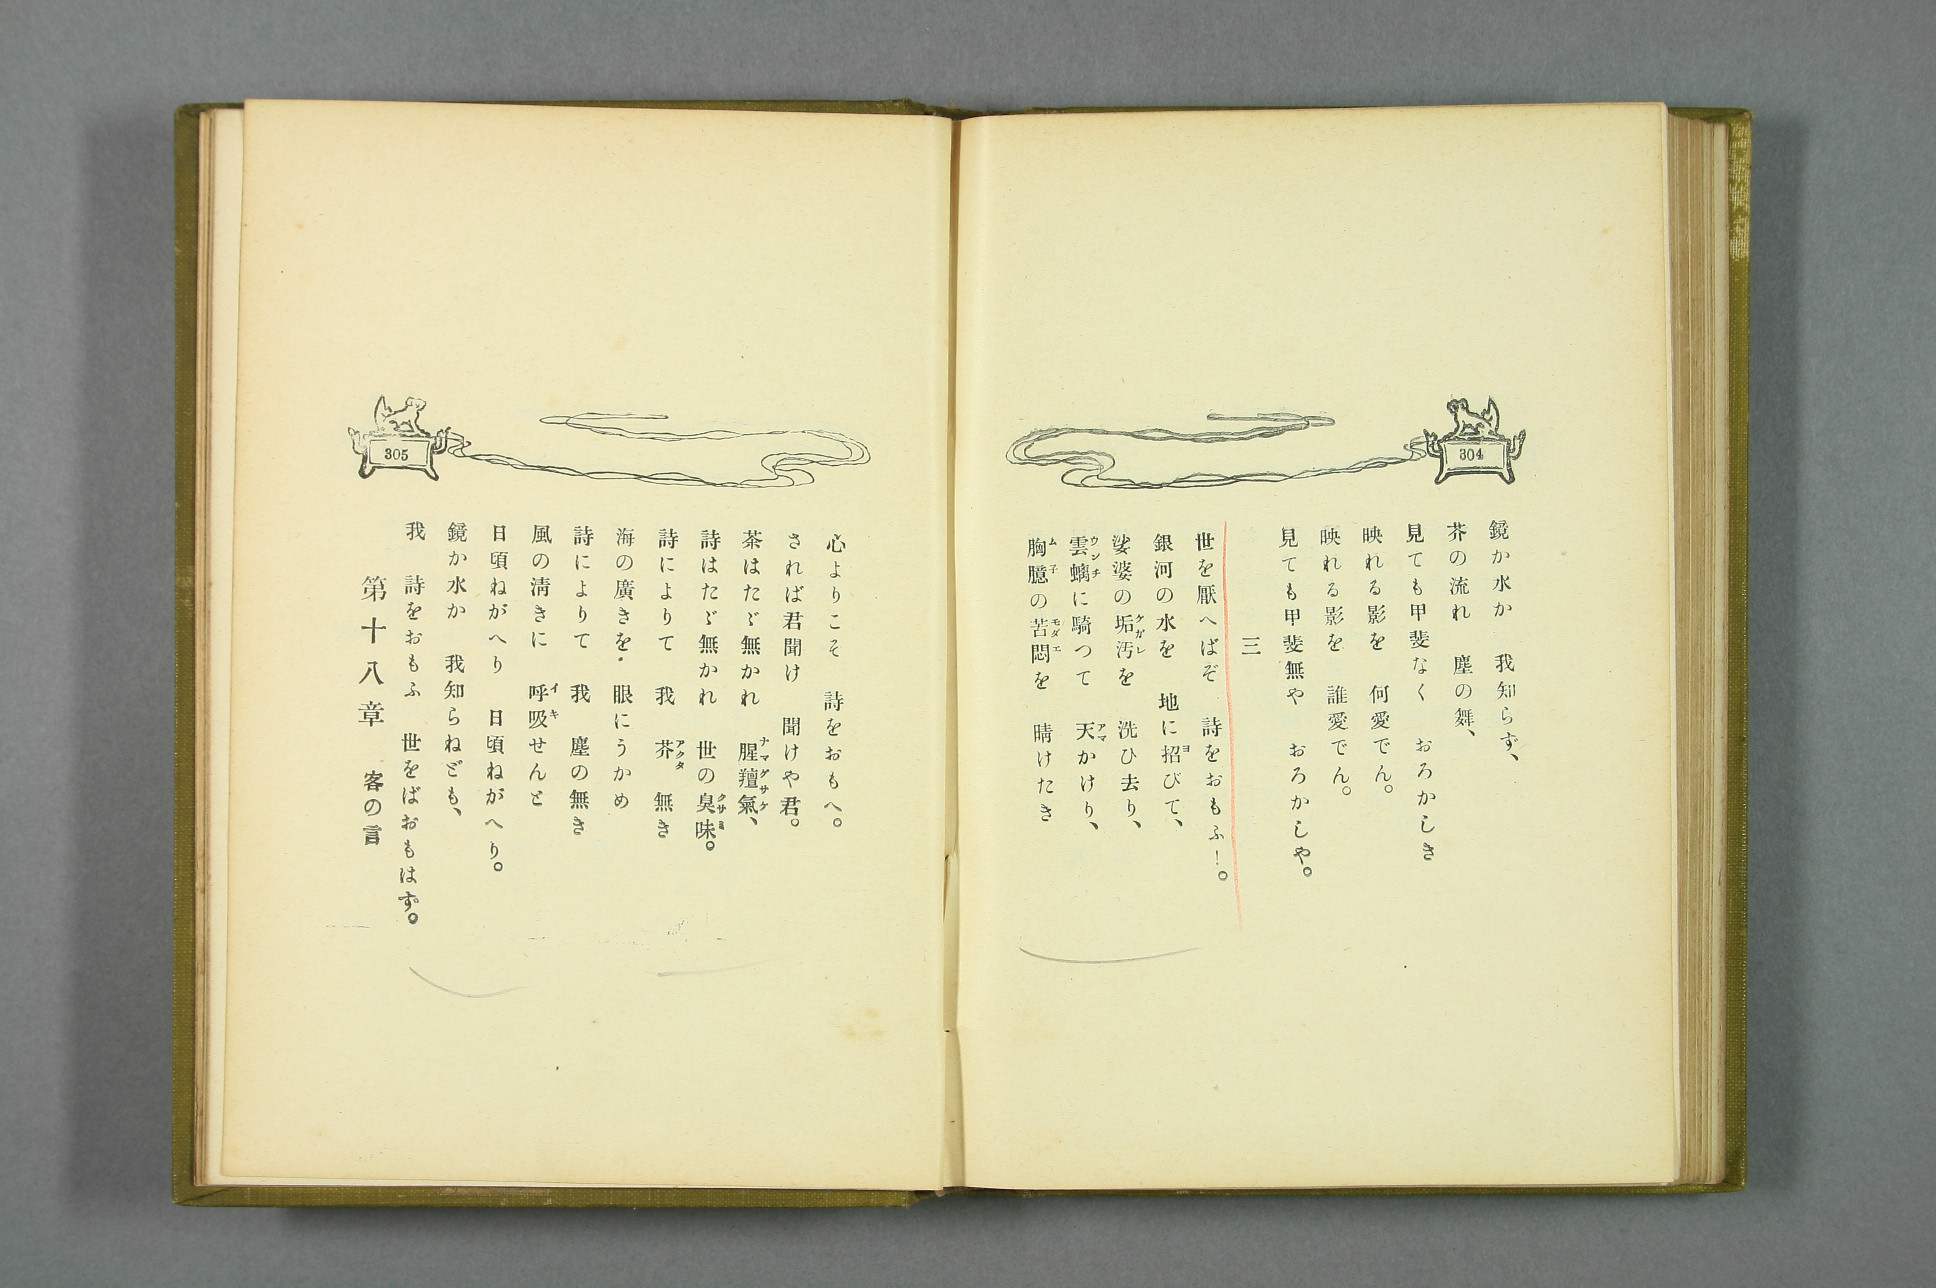 304
鏡か水か　我知らず、
芥の流れ　塵の舞、
見ても甲斐なく　おろかしき
映れる影を　何愛でん。
映れる影を　誰愛でん。
見ても甲斐無や　おろかしや。
三
世を厭へばぞ　詩をおもふ！。
銀河の水を　地に招びて、
娑婆の垢汚を　洗ひ去り、
雲螭に騎つて　天かけり、
胸臆の苦悶を　晴けたき
305
心よりこそ　詩をおもへ。
されば君聞け　聞けや君。
茶はたゞ無かれ　腥羶氣、
詩はたゞ無かれ　世の臭味。
詩によりて　我　芥　無き
海の廣きを　眼にうかめ
詩によりて　我　塵の無き
風の淸きに　呼吸せんと
日頃ねがへり　日頃ねがへり。
鏡か水か　我知らねども、
我　詩をおもふ　世をばおもはず。
第十八章　客の言